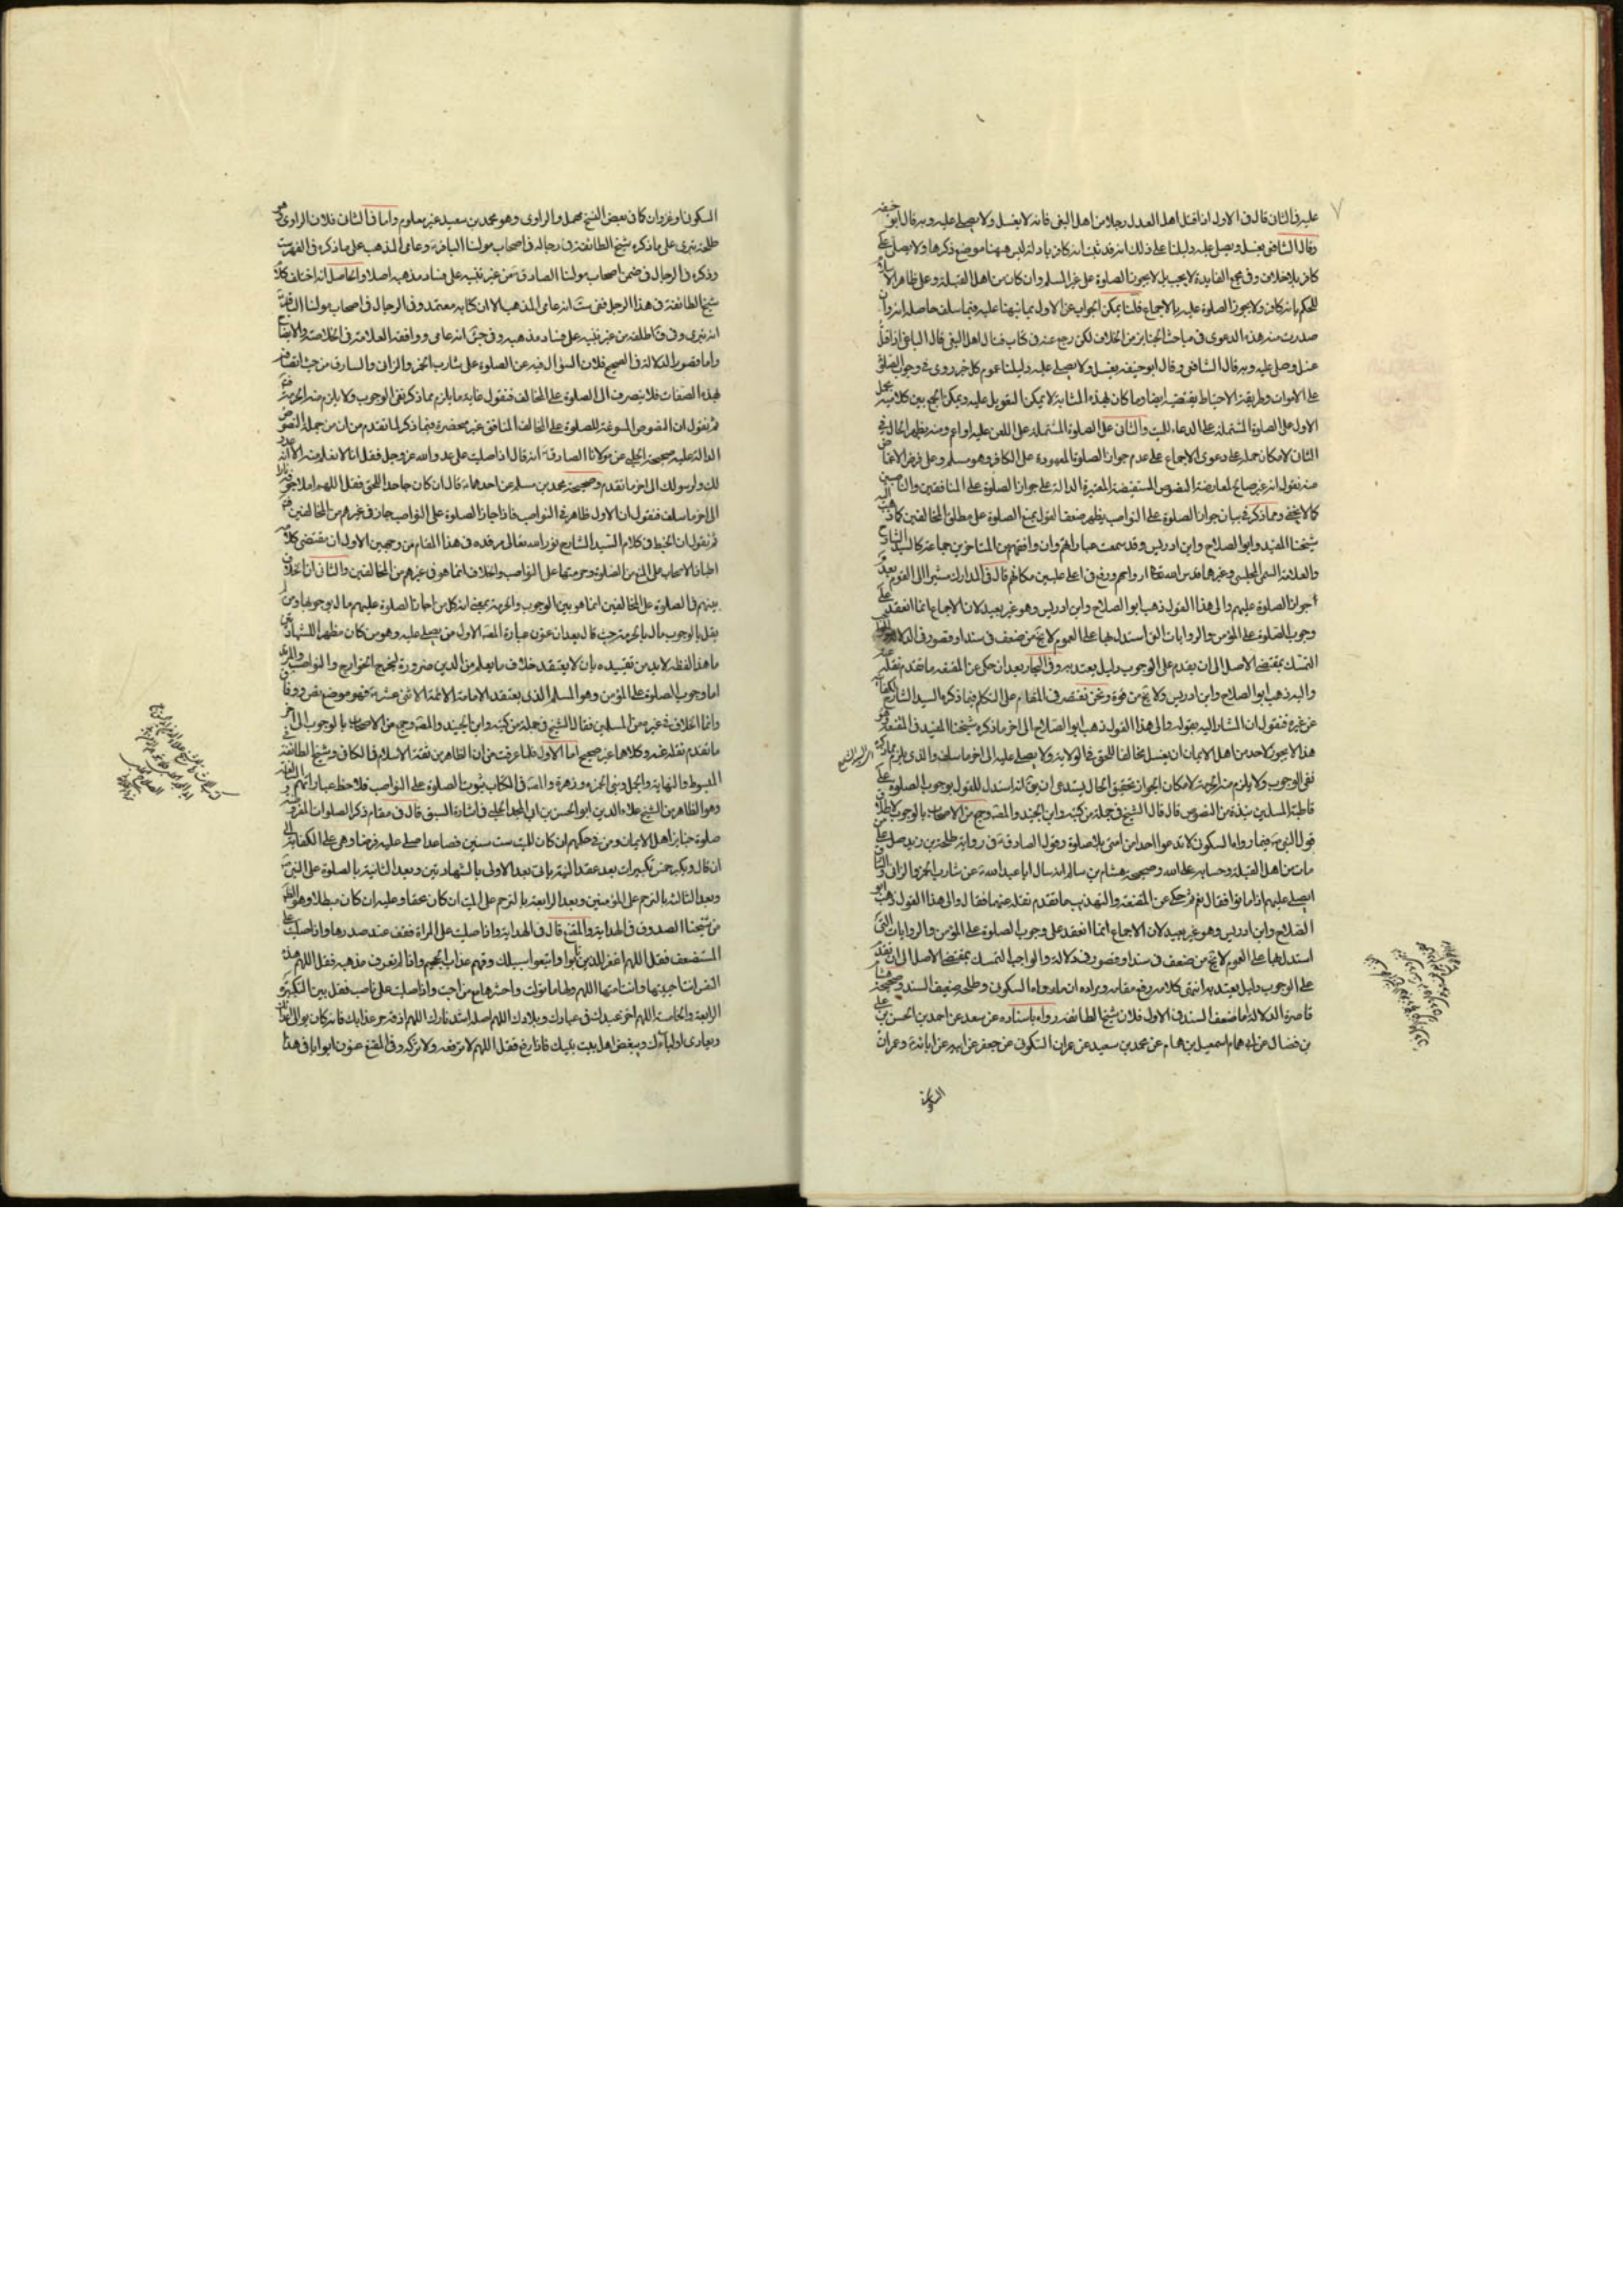 عليه في الثاني قال في الاول اذا قتل اهل العدل رجلا من اهل البغي فانه لا يغسل ولا يصلى عليه وبه قال ابو حنيفه
وقال الشافعي يغسل ويصلى عليه دليلنا على ذلك انه قد ثبت انه كافر بادلة ليس ههنا موضع ذكرها ولا يصلى على
كافر بلا خلاف وفي مجمع الفايدة لا يجب بل لا يجوز الصلوة على غير المسلم وان كان من اهل القبلة وعلى ظاهر الاسلام
للحكم بانه كافر ولا يجوز الصلوة عليه بالاجماع قلنا يمكن الجواب عن الاول بما نبهنا عليه فيما سلف حاصله انه وان
صدرت منه هذه الدعوى في مباحث الجنايز من الخلاف لكن رجع عنه في كتاب قتال اهل البغي قال الباغي اذا قتل
غسل وصلى عليه وبه قال الشافعي وقال ابو حنيفه يغسل ولا يصلى عليه دليلنا عموم كل خبر روى في وجوب الصلوة
على الاموات وطريقة الاحتياط يقتضيه ايضا وما كان بهذه المثابة لا يمكن التعويل عليه ويمكن الجمع بين كلاميه بحمل
الاول على الصلوة المشتملة على الدعاء للميت والثاني على الصلوة المشتملة على اللعن عليه او اعم ومنه يظهر الحال في
الثاني لامكان حمله على دعوى الاجماع على عدم جواز الصلوة المعهودة على الكافر وهو مسلم وعلى فرض الاغماض
منه نقول انه غير صالح لمعارضة النصوص المستفيضة المعتبرة الدالة على جواز الصلوة على المنافقين والناصبين
كما لا يخفى ومما ذكر في بيان جواز الصلوة على النواصب يظهر ضعف القول بمنع الصلوة على مطلق المخالفين كما ذهب اليه
شيخنا المفيد وابو الصلاح وابن ادريس وقد سمعت عباراتهم وان وافقهم من المتاخرين جماعة كالسيد الشارح
والعلامة السمي المجلسي وغيرهما قدس الله تعالى ارواحهم ورفع في اعلى عليين مكانهم قال في المدارك مشيرا الى القول بعدم
جواز الصلوة عليهم والى هذا القول ذهب ابو الصلاح وابن ادريس وهو غير بعيد لان الاجماع انما انعقد على
وجوب الصلوة على المؤمن والروايات التي استدل بها على العموم لا يخ من ضعف في سند او قصور في الدلالة
التمسك بمقتضى الاصل الى ان يقوم على الوجوب دليل يعتد به وفي البحار بعد ان حكى عن المقنعه ما تقدم نقله
واليه ذهب ابو الصلاح وابن ادريس ولا يخ من قوة ونحن نقتصر في المقام على التكلم فيما ذكره السيد الشارح
عن غيره فنقول ان المشار اليه بقوله والى هذا القول ذهب ابو الصلاح الى اخر ما ذكره شيخنا المفيد في المقنعة
هذا لا يجوز لاحد من اهل الايمان ان يغسل مخالفا للحق في الولاية ولا يصلى عليه الى اخر ما سلف والذي يلزم مما ذكره
نفي الوجوب ولا يلزم منه الحرمة لامكان الجواز تحقيق الحال يستدعي ان يق انه استدل للقول بوجوب الصلوة على
قاطبة المسلمين نبذة من النصوص قال قال الشيخ في جملة من كتبه وابن الجنيد والمصه وجمع من الاصحاب بالوجوب لاطلاق
قول النبي فيما رواه السكوني لا تدعوا احدا من امتي بلا صلوة وقول الصادق في رواية طلحة بن زيد صل على
مات من اهل القبلة وحسابه على الله وصحيحة هشام بن سالم انه سال ابا عبد الله عن شارب الخمر والزاني
ايصلى عليهم اذا ماتوا فقال نعم ثم حكى عن المقنعة والتهذيب ما تقدم نقله عنهما فقال والى هذا القول ذهب ابو
الصلاح وابن ادريس وهو غير بعيد لان الاجماع انما انعقد على وجوب الصلوة على المؤمن والروايات التي
استدل بها على العموم لا يخ من ضعف في سند او قصور في دلالة والواجب التمسك بمقتضى الاصل الى ان يقوم
على الوجوب دليل يعتد به انتهى كلامه رفع مقامه ومراده ان ما رواه السكوني وطلحه ضعيف السند وصحيحة هشام
قاصرة الدلالة اما ضعف السند في الاول فلان شيخ الطائفة رواه باسناده عن سعد عن احمد بن الحسن بن علي
بن فضال عن ابي همام اسمعيل بن همام عن محمد بن سعيد عن غزوان السكوني عن جعفر عن ابيه عن ابائه وغزوان
السكوني
السكوني او غزوان كما في بعض النسخ مجمل والراوي وهو محمد بن سعيد غير معلوم واما في الثاني فلان الراوي هو
طلحة بتري على ما ذكره شيخ الطائفة في رجاله في اصحاب مولنا الباقر وعامي المذهب على ما ذكره في الفهرست
وذكره في الرجال في ضمن اصحاب مولنا الصادق من غير تنبيه على فساد مذهبه اصلا والحاصل انه اختلف كلام
شيخ الطائفة في هذا الرجل ففي ست انه عامي المذهب الا ان كتابه معتمد وفي الرجال في اصحاب مولنا الباقر
انه بتري وفي ق اطلقه من غير تنبيه على فساد مذهبه وفي جش انه عامي ووافقه العلامة في الخلاصة والايضاح
واما قصور الدلالة في الصحيح فلان السؤال فيه عن الصلوة على شارب الخمر والزاني والسارق من حيث اتصافهم
بهذه الصفات فلا ينصرف الى الصلوة على المخالف فنقول غاية ما يلزم مما ذكر نفي الوجوب ولا يلزم منه الحرمة
ثم نقول ان النصوص المسوغة للصلوة على المخالف المنافق غير منحصرة فيما ذكر لما تقدم من ان من جملة النصوص
الدالة عليه صحيحة الحلبي عن مولانا الصادق انه قال اذا صليت على عدو الله عز وجل فقل انا لا نعلم منه الا انه عدو
لك ولرسولك الى اخر ما تقدم وصحيحة محمد بن مسلم عن احدهما قال ان كان جاحدا للحق فقل اللهم املا جوفه نارا
الى اخر ما سلف فنقول ان الاول ظاهر في النواصب فاذا جاز الصلوة على النواصب جاز في غيرهم من المخالفين
ثم نقول ان الخبط في كلام السيد الشارح نور الله تعالى مرقده في هذا المقام من وجهين الاول ان مقتضى كلامه
اطباق الاصحاب على المنع من الصلوة وحرمتها على النواصب والخلاف انما هو في غيرهم من المخالفين والثاني ان الخلاف
بينهم في الصلوة على المخالفين انما هو بين الوجوب والحرمة بمعنى انه كل من اجاز الصلوة عليهم قال بوجوبها ومن لم
يقل بالوجوب قال بالحرمة حيث قال بعد ان عنون عبارة المصه الاول من يصلى عليه وهو من كان مظهرا للشهادتين
ما هذا لفظه لا بد من تقييده بان لا يعتقد خلاف ما يعلم من الدين ضرورة ليخرج الخوارج والنواصب
اما وجوب الصلوة على المؤمن وهو المسلم الذي يعتقد الامامة الائمة الاثنى عشرية فهو موضع نص ووفاق
وانما الخلاف في غيره من المسلمين فقال الشيخ في جملة من كتبه وابن الجنيد والمصه وجمع من الاصحاب بالوجوب الى اخر
ما تقدم نقله عنه وكلاهما غير صحيح اما الاول فلما عرفت من ان الظاهر من ثقة الاسلام في الكافي وشيخ الطائفة في
المبسوط والنهاية والجمل وبني الحمزه وزهره والمصه في الكتاب ثبوت الصلوة على النواصب فلاحظ عباراتهم
وهو الظاهر من الشيخ علاء الدين ابو الحسن بن ابي المجد الحلبي في اشارة السبق قال في مقام ذكر الصلوات المفروضة
صلوة جنايز اهل الايمان ومن في حكمهم ان كان للميت ست سنين فصاعدا صلى عليه فرضا وهي على الكفاية الى
ان قال ويكبر خمس تكبيرات بعد عقد النية باتي بعد الاولى بالشهادتين وبعد الثانية بالصلوة على النبي
وبعد الثالثة بالترحم على المؤمنين وبعد الرابعة بالترحم على الميت ان كان محقا وعليه ان كان مبطلا وهو الظاهر
من شيخنا الصدوق في الهداية والمقنع قال في الهداية واذا صليت على المراة فقف عند صدرها واذا صليت على
المستضعف فقل اللهم اغفر للذين تابوا واتبعوا سبيلك وقهم عذاب الجحيم واذا لم تعرف مذهبه فقل اللهم هذه
النفس انت احييتها وانت امتها اللهم ولها ما تولت واحشرها مع من احبت واذا صليت على ناصب فقل بين التكبيرة
الرابعة والخامسة اللهم اخز عبدك في عبادك وبلادك اللهم اصله اشد نارك اللهم اذقه حر عذابك فانه كان يوالي اعدائك
ويعادي اولياءك ويبغض اهل بيت نبيك فاذا رفع فقل اللهم لا ترفعه ولا تزكه وفي المقنع عنون ابوابا في هذا